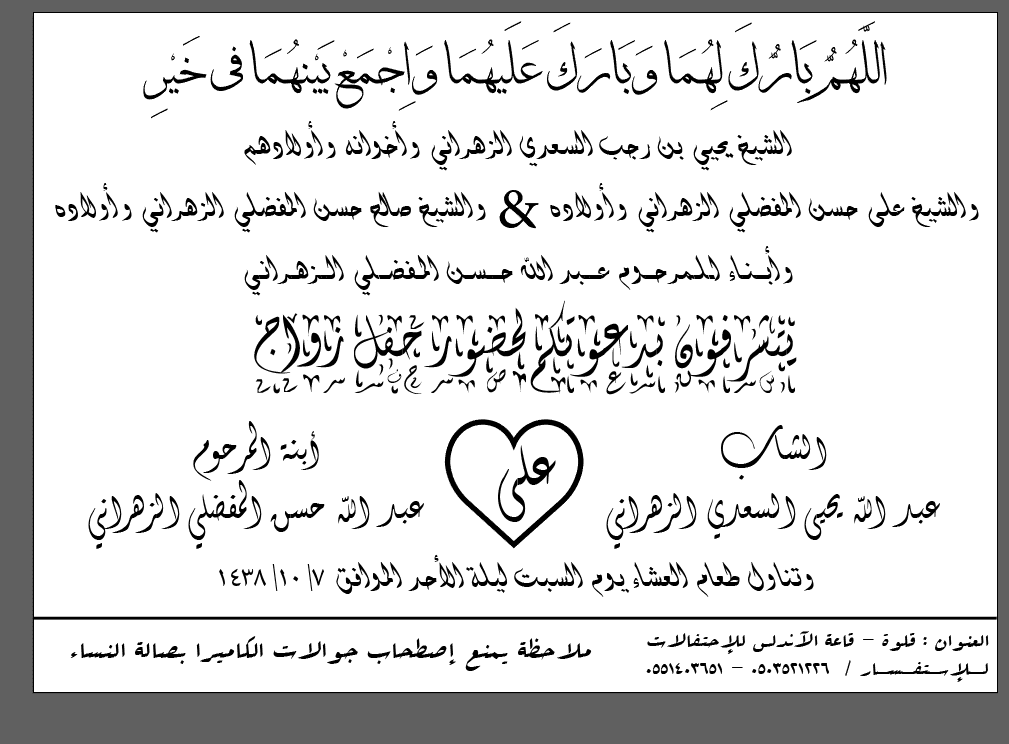 اللَّهُمَّ بَارُّكَ لِهُمَا وَبَارَكَ عَلَيهُمَا وَاِجْمَعْ بَيْنهُمَا فى خَيْرِ
الشيخ يحيي بن رجب السعدي الزهراني وأخوانه وأولادهم
والشيخ على حسن المفضلي الزهراني وأولاده & والشيخ صالح حسن المفضلي الزهراني وأولاده
وأبـناء للـمرحـوم عـبد الله حـسـن المـفضـلي الـزهـراني
يتشرفون بدعوتكم لحضور حفل زواج
الشاب
عبد الله يحيى السعدي الزهراني
على
أبنة المرحوم
عبد الله حسن المفضلي الزهراني
وتناول طعام العشاء يوم السبت ليلة الأحد الموافق ٧/ ١٠/ ١٤٣٨
العنوان : قلوة – قاعة الآندلس للإحتفالات
لـلإسـتفـسـار / ٠٥٠٣٥٢١٢٢٦ – ٠٥٥١٤٠٣٦٥١
ملاحظة يمنع إصطحاب جوالات الكاميرا بصالة النساء